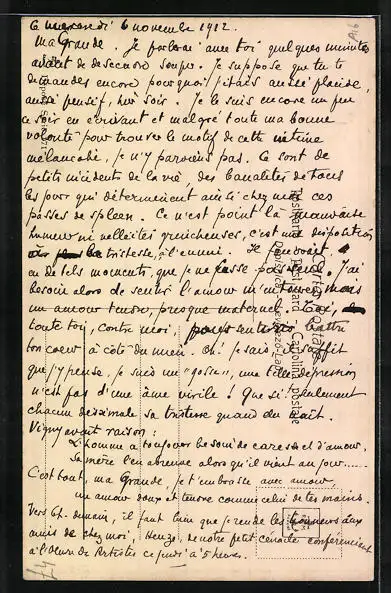 Ce mercredi 6 novembre 1912.
Ma Grande. Je parlerai avec toi quelques minutes
avant de descendre souper. Je suppose que tu te
demandes encore pourquoi j'étais aussi placide,
aussi pensif, hier soir. Je le suis encore un peu
ce soir en écrivant et malgré toute ma bonne
volonté pour trouver le motif de cette intime
mélancolie, je n'y parviens pas. Ce sont de
petits incidents de la vie, des banalités de tous
les jours qui déterminent ainsi chez moi ces
passes de spleen. Ce n'est point la mauvaise
humeur ni velléités grincheuses, c'est une disposition
à la tristesse, à l'ennui. Il faudrait
en de tels moments, que je ne fusse pas seul. J'ai
besoin alors de sentir l'amour m'entourer, mais
un amour tendre, presque maternel. Toi,
toute toi, contre moi, pour sentir battre
ton coeur à côté du mien. Oh! je sais, il suffit
que j'y pense, je suis un "gosse", une telle dépression
n'est pas d'une âme virile! Que si seulement
chacun dissimule sa tristesse quand on croit.
Vigny avait raison:
L'homme a toujours besoin de caresse et d'amour,
Sa mère l'en abreuve alors qu'il vient au jour.....
C'est tout, ma Grande, je t'embrasse avec amour,
un amour doux et tendre comme celui de tes mains.
Vers 6h. demain, il faut bien que je rende les honneurs aux
amis de chez moi, de notre petit cénacle conférenciant
à l'Oeuvre des Artistes ce jeudi à 5 heures.